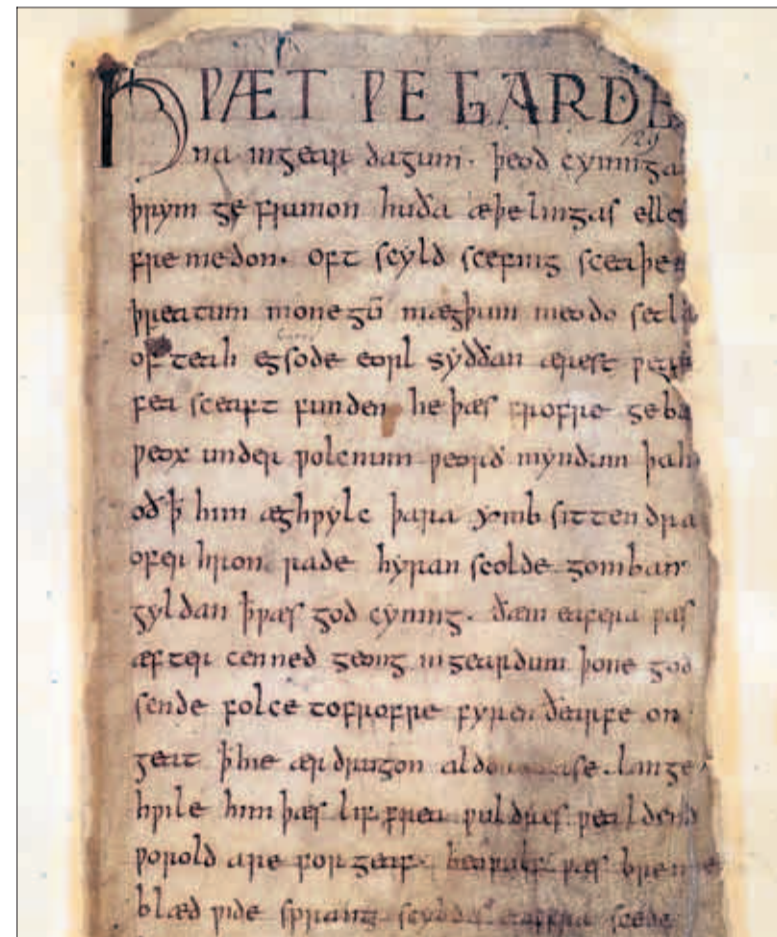 HǷÆT ǷE GARDE
na ingear dagum. þeod cyninga
þrym ge frunon huða æþelingas elle
fremedon. oft scyld scefing sceaþe
þreatum monegū mægþum meodo setla
ofteah egsode eorl syððan ærest ƿearð
fea sceaft funden he þæs frofre geba
ƿeox under ƿolcnum ƿeorð myndum þah
oð ꝥ him æghƿylc þara ymb sittendra
ofer hron rade hyran scolde gomban
gyldan ꝥ ƿæs god cyning. ðæm eafera ƿæs
æfter cenned geong ingeardum þone god
sende folce tofrofre fyren ðearfe on
geat ꝥ hie ær drugon aldor ase. lange
hƿile him þæs lif frea ƿuldres ƿealdend
ƿorold are for geaf. beoƿulf ƿæs breme
blæd ƿide sprang scyldes eafera scede